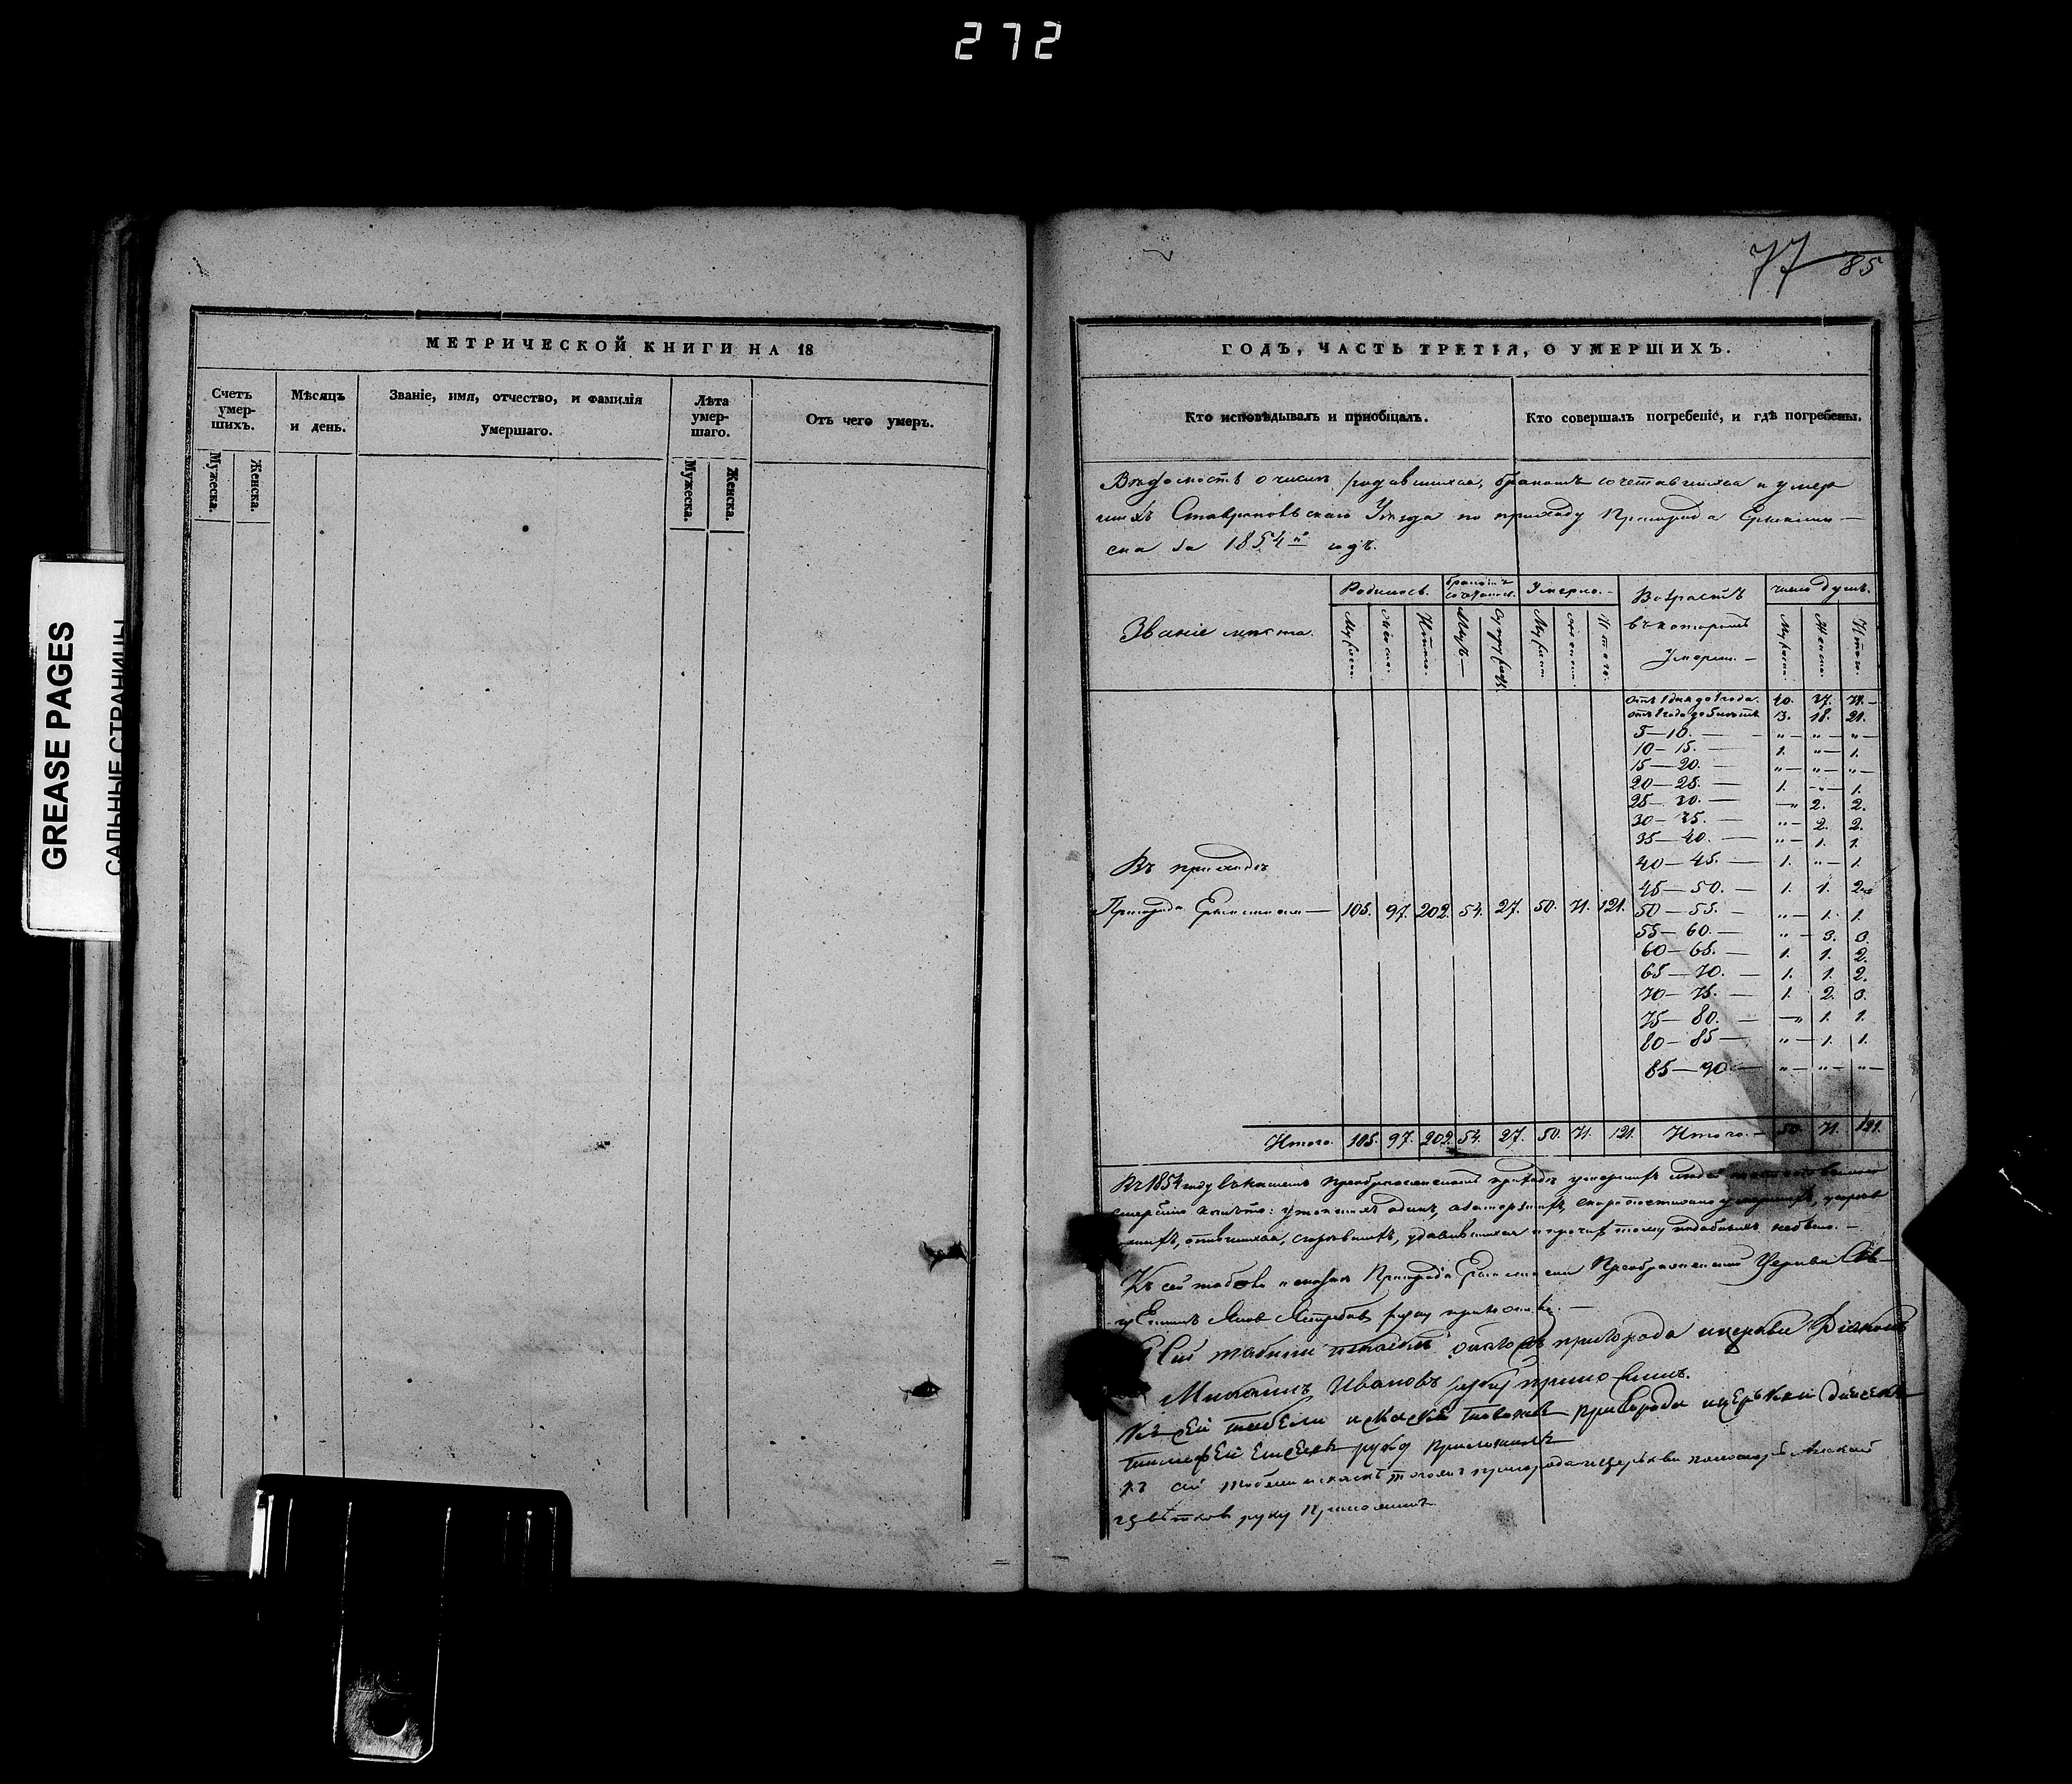 272
GREASE PAGES
САЛЬНЫЕ СТРАНИЦЫ
МЕТРИЧЕСКОЙ КНИГИ НА 18
Счетъ умер-
шихъ.
Мѣсяцъ
и день.
Званіе, имя, отчество, и фамилія
умершаго.
Лѣта
умер-
шаго.
Отъ чего умеръ.
Мужеска.
Женска.
Мужеска.
Женска.
77 85
ГОДЪ, ЧАСТЬ ТРЕТІЯ, О УМЕРШИХЪ.
Кто исповѣдывалъ и пріобщалъ.
Кто совершалъ погребеніе, и гдѣ погребены.
Вѣдомость о числѣ родившихся, бракомъ сочетавшихся и умер
шихъ Ставропольскаго Уѣзда по приходу Пригорода Ерыклин-
ска за 1854й годъ.
Званіе мѣста.
Родилось.
Бракомъ сочеталось.
Умерло.
Возрастъ
въ которомъ
Умерли.
число душъ.
Мужеска. Женска. Итого. Мужъ Супружествъ. Мужеска. Женска. Итого. Мужеска. Женска. Итого.
отъ 1 дня до 1 года. 37.
отъ 1 года до 5 лѣтъ 18. 21.
5—10. — „— „— „—
10—15. — 1. „— 1.
15—20. — „— „— „—
20—25. — 1. „— 1.
25—30. — —„ 2. 2.
30—35. — „— 2. 2.
35—40. — „— 1. 1.
40—45. — 1. „— 1.
45—50. — 1. 1. 2.
50—55. — „— 1. 1.
55—60. — „— 3. 3.
60—65. — 1. 1. 2.
65—70. — 1. 1. 2.
70—75. — 1. 2. 3.
75—80. — —„ 1. 1.
80—85 — „— 1. 1.
85—90. — „— „— „—
Въ приходѣ
Пригорода Ерыклинска — 105. 97. 202. 54. 27. 50. 71. 121.
Итого. 105. 97. 202. 54. 27. 50. 71. 121. Итого. — 50. 71. 121.
Въ 1854 году въ нашемъ Преображенскомъ приходѣ умершихъ
утопшихъ одинъ, скоропостижно умершихъ,
опившихся, сгорѣвшихъ, удавившихся и прочихъ тому подобныхъ небыло. —
Къ сей табели и сказкѣ Пригорода Ерыклинска Преображенской Церкви Свя-
щенникъ Яковъ руку приложилъ. —
Сей табели пригорода и церкви Діаконъ
Михаилъ Ивановъ руку приложилъ.
Къ сей табели и сказкѣ тогоже пригорода и церкви дьячекъ
Тимофей руку приложилъ
Къ сей табели и сказкѣ тогожъ пригорода и церкви пономарь
Цвѣтковъ руку приложилъ